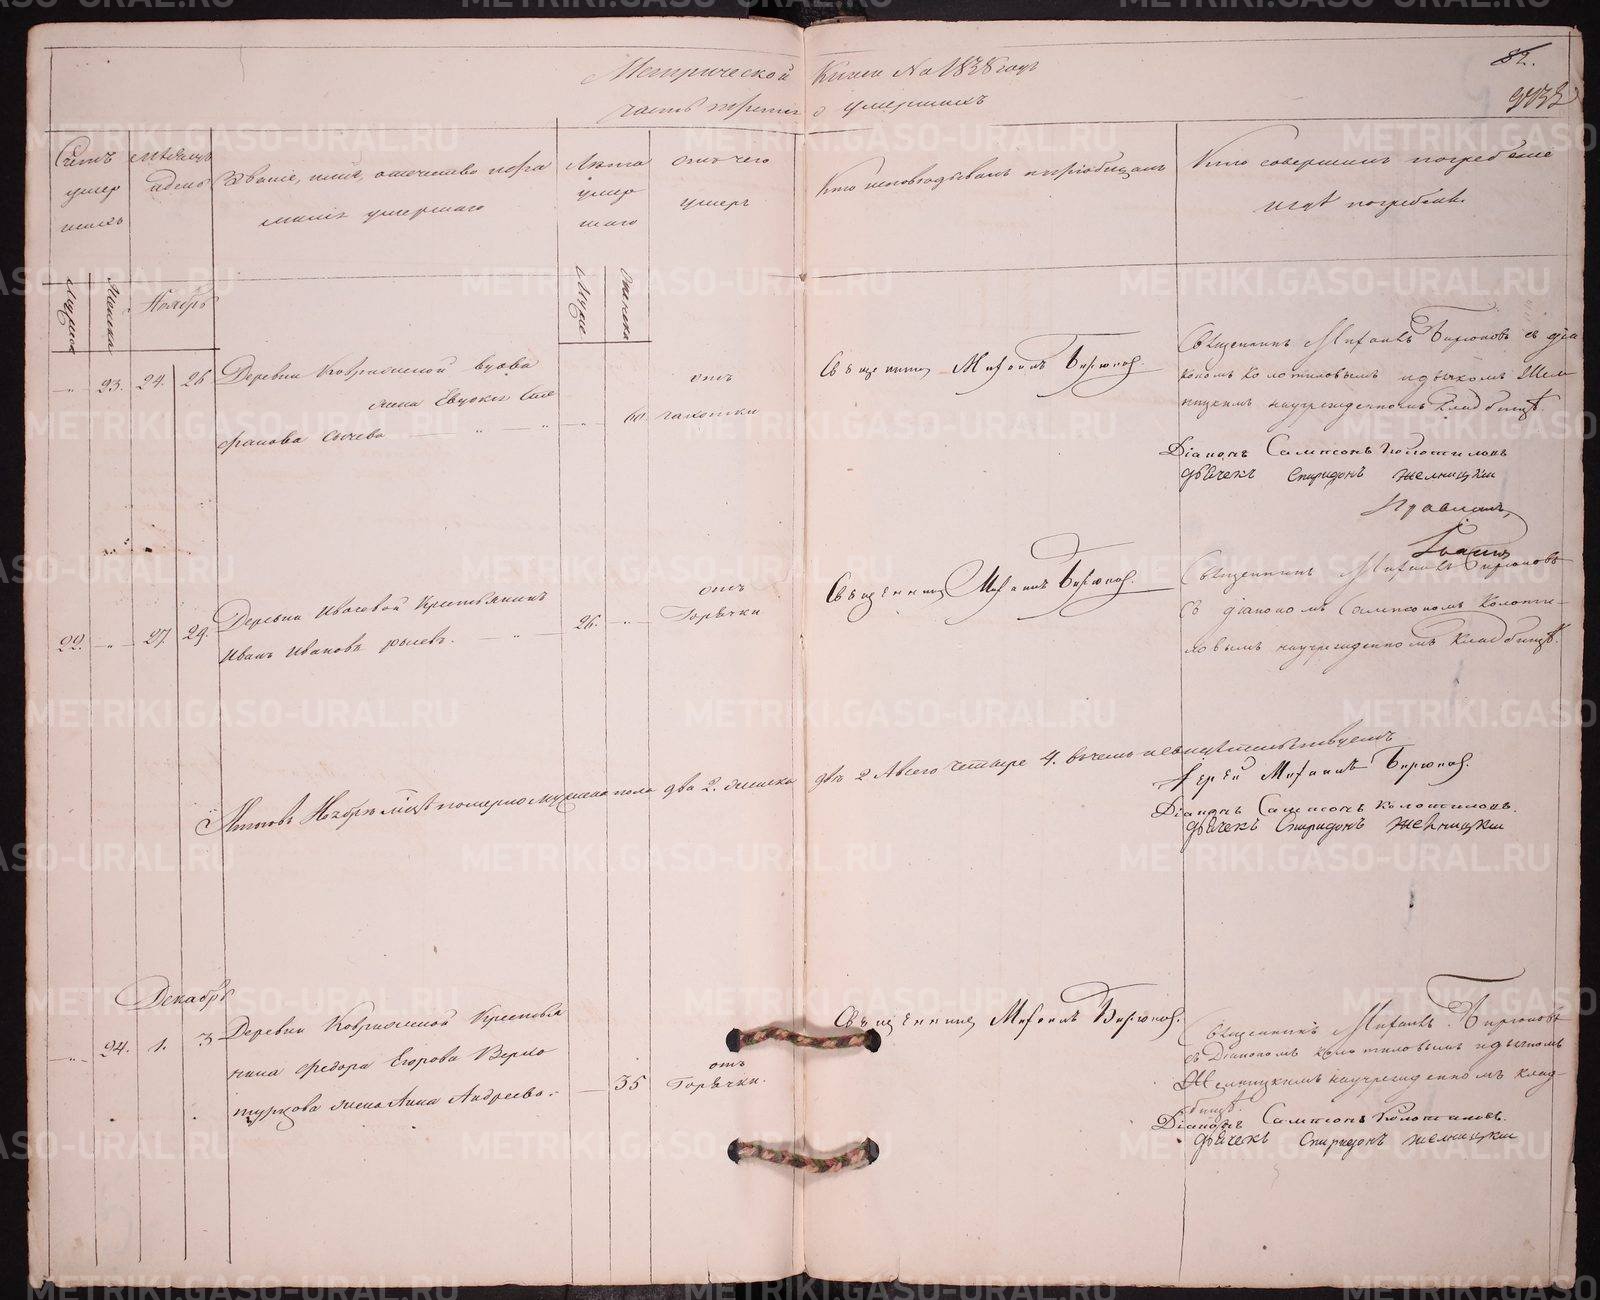 Метрической Книги На 1838 годъ
82.
часть третья о умершихъ
Счетъ умер шихъ
Мѣсяцъ и день
Званіе, имя, отечество и фа
милія умершаго
Лѣта умер шаго
отъ чего умеръ
Кто исповѣдывалъ и пріобщалъ
Кто совершилъ погребеніе
и гдѣ погребенъ
Мужеска
Женска
Ноябрь
Мужеска
Женска
23. 24. 26
Деревни вдова
Евдокія
Сычева
60.
отъ
чахотки
Священникъ Мифаилъ Бирюковъ.
Священникъ Мифаилъ Бирюковъ съ діа
кономъ Колотиловымъ и дьячкомъ Жел
ницкимъ на учрежденномъ кладбищѣ.
Діаконъ Сампсонъ Колотиловъ
Дьячекъ Спиридонъ Желницкій
22. 27 29.
Деревни Крестьянинъ
Иванъ Ивановъ
26.
отъ
Горячки
Священникъ Мифаилъ Бирюковъ.
Священникъ Мифаилъ Бирюковъ
съ діакономъ Сампсономъ Колоти-
ловымъ на учрежденномъ кладбищѣ.
Итого въ Ноябрѣ м҃цѣ померло мужеска пола два 2. женска двѣ 2 А всего четыре 4. въ чемъ и свидѣтельствуемъ
Іерей Мифаилъ Бирюковъ.
Діаконъ Сампсонъ Колотиловъ.
Дьячекъ Спиридонъ Желницкій
Декабрь
24. 1. 3
Деревни Крестья
нина Федора Егорова
жена Анна Андреева.
35
отъ
Горячки.
Священникъ Мифаилъ Бирюковъ.
Священникъ Мифаилъ Бирюковъ
съ Діакономъ Колотиловымъ и дьячкомъ
Желницкимъ на учрежденномъ клад-
бищѣ.
Діаконъ Сампсонъ Колотиловъ.
Дьячекъ Спиридонъ Желницкій
METRIKI.GASO-URAL.RU